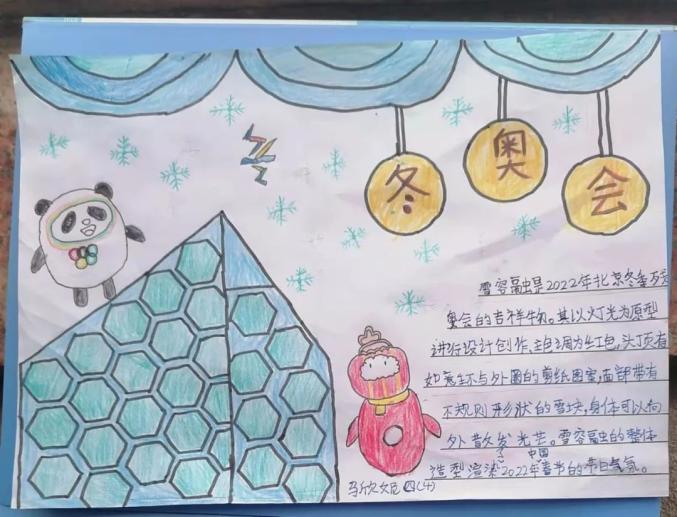 冬
奥
会
雪容融是2022年北京冬季残
奥会的吉祥物。其以灯光为原型
进行设计创作,主色调为红色,头顶有
如意环与外圈的剪纸图案,面部带有
不规则形状的雪块,身体可以向
外散发光芒。雪容融的整体
造型渲染了2022年中国春节的节日气氛。
马欣妃 四(4)